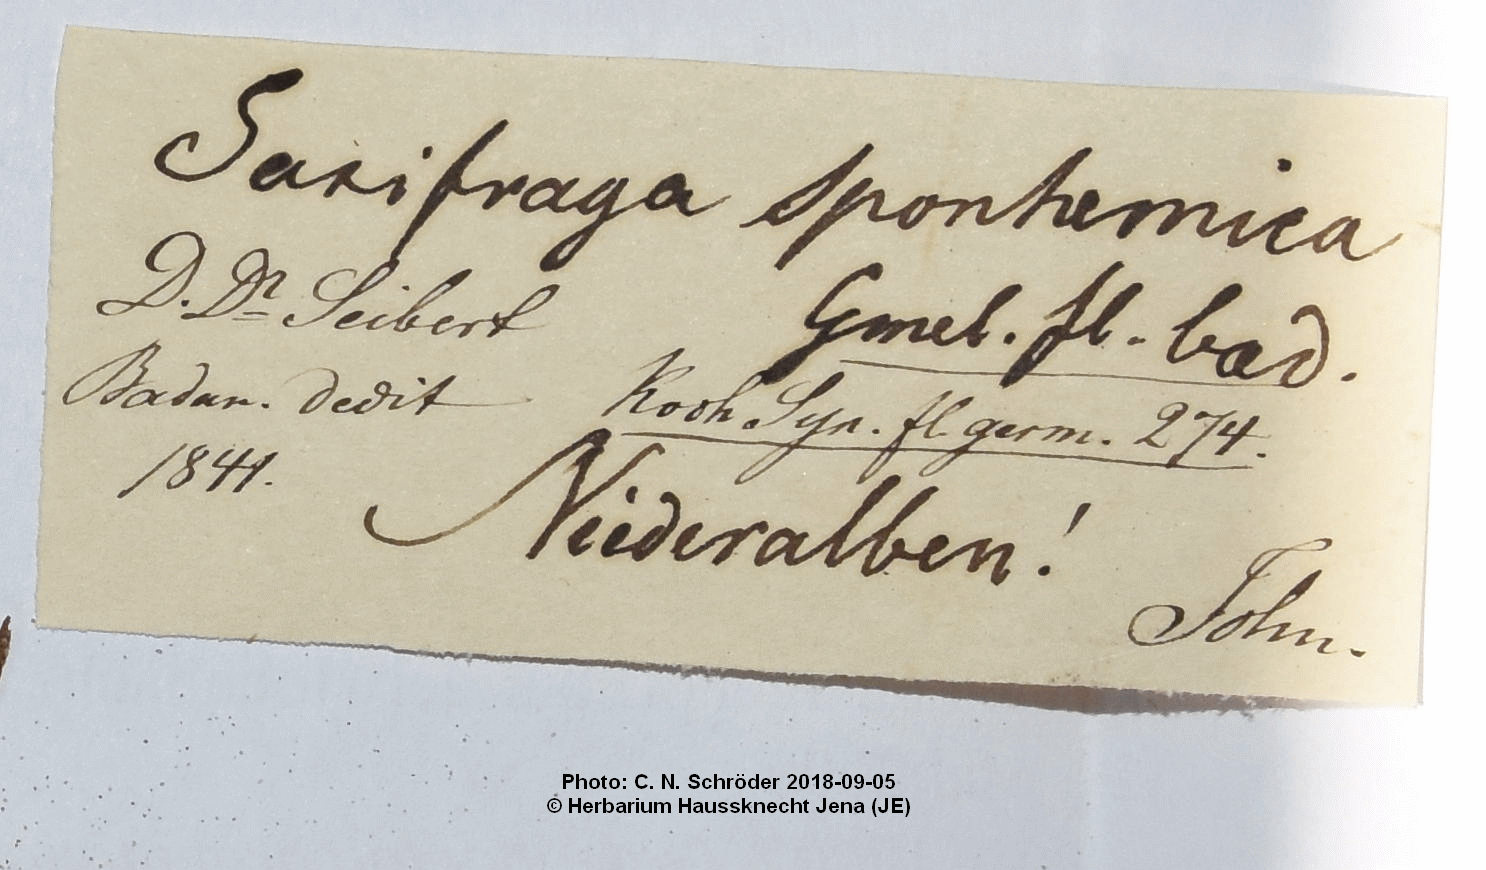 Saxifraga sponhemica
Gmel. fl. bad.
D. Dr Seibert
Badan. dedit
1841.
Koch Syn. fl germ. 274.
Niederalben!
John.
Photo: C. N. Schröder 2018-09-05
© Herbarium Haussknecht Jena (JE)